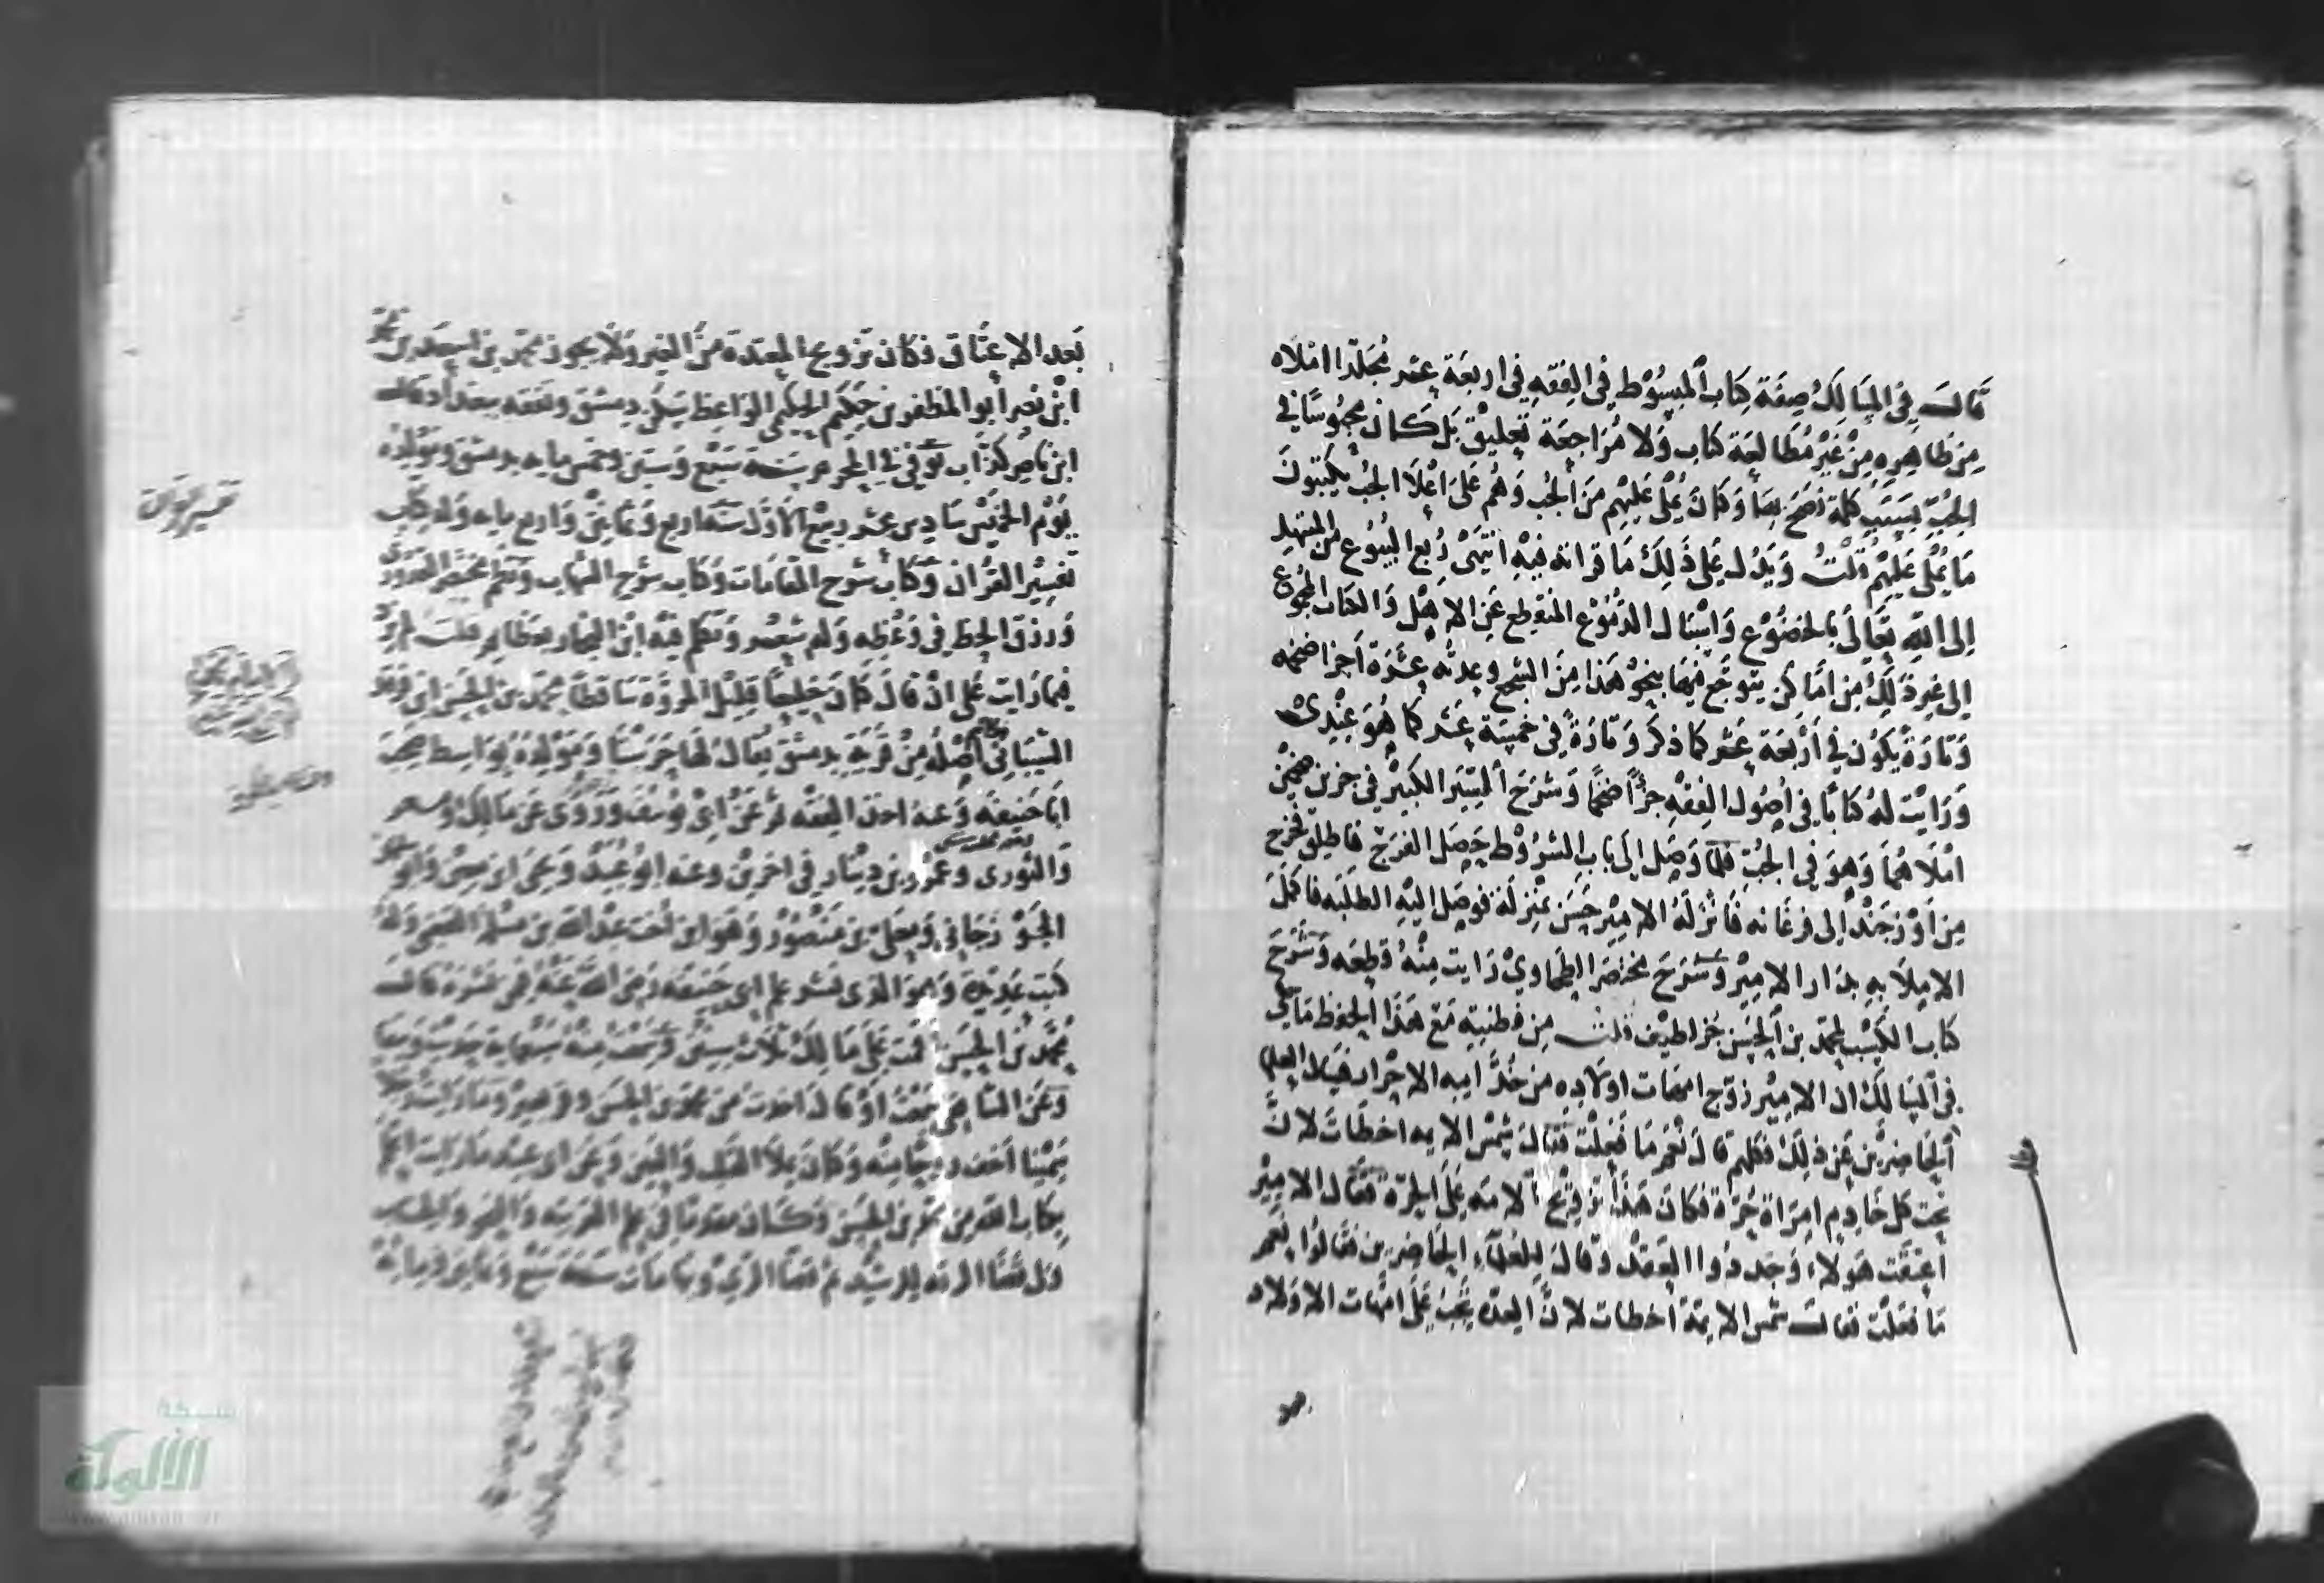 قالَ فِي المسَالِكْ صِفَة كِتَاب المبسُوْط فِي الفِقهِ فِي اربعَة عشر مُجَلّدا املَاه
مِن خَاطِرِهِ مِنْ غَيْرِ مُطَالَعَة كتاب وَلا مُرَاجعَة تعليق بَل كان محبُوسًا في
الجُبّ بسَبَب كلمة نصَحَ بهَا وَكانَ يُمْلي عَلَيْهِم مِنَ الجُب وَهُم عَلَى اعْلَا الجُب يكتبونَ
مَا يُمْلي عَلَيْهِم قلتُ وَيَدُل عَلى ذَلِكَ مَا قراته فيْهِ انتَهَىْ رُبع البيُوع مِن المبتهل
الى اللهِ تعَالَى بالخضُوْع وَاسْبَال الدمُوْع المنقطع عَن الاهْل وَالكتاب المجموُع
الى غير ذَلِكْ مِن امَاكن يتوجّع فيهَا بنحوْ هَذا مِنَ السجع وعدته عشرَة اَجزا ضخمه
وَتارَة يكوُن في أرْبعَة عَشر كما ذكر وَتارَةً فِي خمسَة عَشر كما هُوَ عِنْدي
وَرَايْت لهُ كتابًا فِي اُصُول الفِقهِ جزًأ ضخمًا وَشرَحَ السِيَر الكَبيرْ فِي جزين ضخمين
امْلَاهُمَا وَهوَ في الجُبّ فلمّا وَصَل الَى بَاب الشرُوْط حَصَل الفَرَج فاطلِق فخرج
مِن اُوْزجَنْد الى فرغانه فانزلهُ الامير حَسَن بمنزله فوصَل اليْهِ الطلبَه فاكملَ
الاملاَ بهِ بدَار الامِيْر وَشرَحَ مختصَر الطحاويْ رَايت مِنْهُ قطعَه وَشَرَحَ
كتابَ الكسْب لمحمّد بن الحسَن جزا لطيْف قلت مِن فطنتِه مَع هَذا الحفظ مَا حُكي
فِي المسَالِكْ ان الامِيْر زوّج امهَات اولاَدِه مِن خدَّامِه الاحْرار فسَال العلما
الحَاضِريْن عَن ذَلِكْ فكلهم قالَ نعْمَ مَا فَعَلْت فقالَ شمس الايمه اخطَات لانَّ
تحت كل خادِم امرَاة حُرّة فكانَ هَذا تزويْج الامَه عَلَى الحرّة فقَال الامِيْر
اعتقت هَولاَء وَجددوا العقد وَقالَ لِلعُلمَاء الحَاضِرين فقَالوا نِعمَ
مَا فعَلت فقالَ شمس الايمّة اخطات لانَّ العدّه تجبُ عَلَى امّهات الاولاد
بَعد الاعتَاق فكان تزويج المعتدة مِنَ الغير وَلَا يجوز محمّد بن اسعَد بن محمّد
ابنْ نصر أبو المظفر بن حَكيْم الحكيْمي الوَاعِظ سَكن دِمشق وتفقه ببغداد قال
ابن ناصِر كذّاب توفي في المحرم سَنة سَبْع وَستين وخمس مايه بدمشق وَمَوْلِدُه
يَوْم الخميْس سَادِس عشر ربيْع الأوَّل سنَة اربع وَثمانيْن وَاربع مايه وَله كِتَاب
تفسِيْر القرْان وَكتابْ شرح المقامَات وَكتاب شرْح الشهاب وَنظم مختصَر القدوري
وَرزق الحظ فِي وَعْظه وَله شِعْر وَتكلم فيْه ابْن النجار بعظايم قلت لم يزد
فيمَا رَايت عَلى انْ قالَ كَانَ خَلِيعًا قلِيْل المروّة سَاقطًا محمّد بن الحسَن ابن فرقد
الشيْبَانيْ أصْلهُ مِنْ قرْيَةٍ بدمشق يُقال لهَا حَرَسْتَا وَمَوْلِدهُ بوَاسِط صَحِبَ
ابَا حَنيفة وَعنهُ اخذ الفِقْه ثم عَنْ ابيْ يُوسُف وَرَوَى عَن مَالِكْ وَمسعر
وَالثورِى وعَمْرو بن دِيْنار في اخَريْن وعنه ابو عُبَيْد وَيحيَى ابن معين وَابو سليمان
الجَوْزجَاني وَمعَلّى بن مَنصُوْر وَهوَ ابن اخت عبْد الله بن مسْلمَة القعنبي وَلهُ
كتب عَدِيْدة وَهوَ الذِى نشر علم ابي حَنيفَة رَضى الله عَنْهُ فِي نشرَه قالَ
مُحمّد بْن الحسَن اقمت عَلَى مَالِكْ ثلاَث سِنين وَسَمعت مِنْهُ سَبْعماية حَدِيث وَنيفا
وَعَنْ الشافِعي قالَ اخذت مِن محمّد بن الحسَن وقر بعير وَمَا رَايْت رَجلا
سَمِيْنا اخف روحًا مِنْه وَكانَ يملاَ القَلب وَالعَيْن وَعَن ابي عبيْد مَا رَايْت اعلم
بِكتاب الله مِن محمّد بن الحسَن وَكانَ مقدمًا في علم العَربيَّة وَالنحو وَالحسَاب
وَلى قضَا الرقه للرَشيْد ثم قضَا الرَيْ وَبهَا مَات سَنَة سَبْع وَثمانين وَمِائة
تفسير القران
شبكة
الألوكة